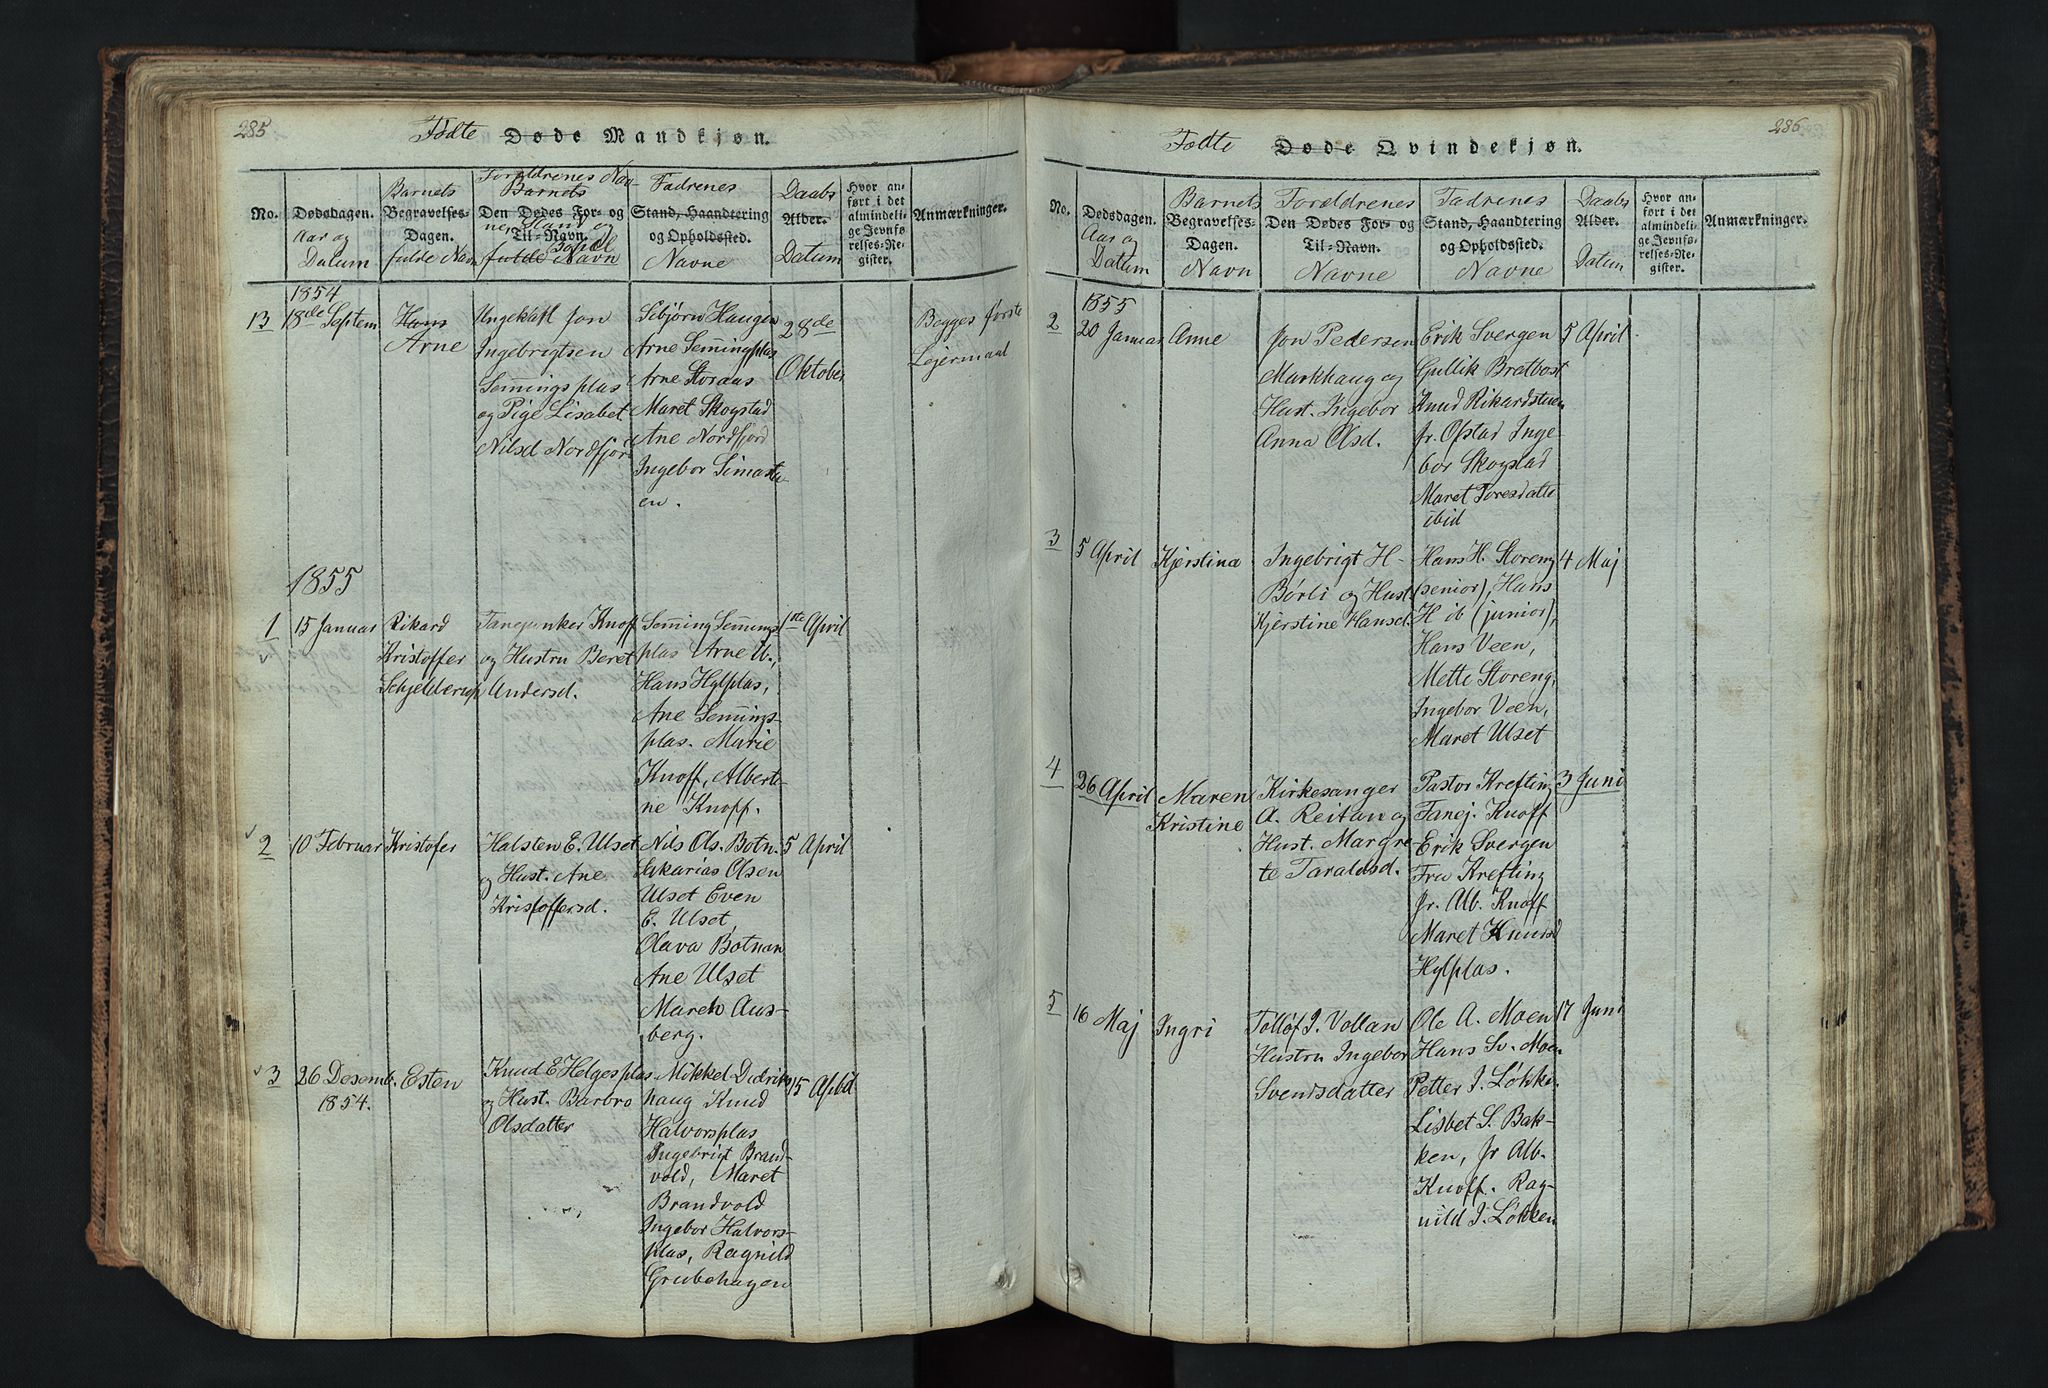 285
Fødte Døde Mandkjøn.
No.
Dødsdagen.
Aar og
Datum
Barnets
Begravelses-
Dagen.
fulde Navn
Forældrenes Nav-
Barnets
Den Dødes For- og
ne, Stand og
Til-Navn.
Bopæl
fulde Navn
Fadrenes
Stand, Haandtering
og Opholdssted.
Navne
Daabs
Alder.
Datum
Hvor an-
ført i det
almindeli-
ge Jevnfø-
relses-Re-
gister.
Anmærkninger.
1854
13
18de Septem
Hans
Arne
Ungekall Jon
Ingebrigtsen
Semingsplas
og Pige Lisabet
Nilsd Nordfjord
Sebjørn Haugen
Arne Semingplas
Arne Storaas
Maret Skogstad
Ane Nordfjord
Ingebor Simastu-
en.
28de
Oktober
Begges første
Lejermaal
1855
1
15 Januar
Rikard
Kristoffer
Schjelderup
Fanejunker Knoff
og Hustru Beret
Andersd.
Seming Semings
plas Arne U.,
Hans Hylplas,
Ane Semings-
plas. Marie
Knoff, Alberti-
ne Knoff.
1ste April
2
10 Februar
Kristofer
Halsten E. Ulset
og Hust. Ane
Kristoffersd.
Nils Os. Botn.
Sakarias Olsen
Ulset Even
E. Ulset,
Olava Botnan
Ane Ulset
Maren Aus-
berg.
5 April
3
26 Desemb.
1854.
Esten
Knud E Helgesplas
og Hust. Barbro
Olsdatter
Mikkel Didriks
haug Knud
Halvorsplas
Ingebrigt Brand-
vold, Maret
Brandvold
Ingebor Halvors-
plas, Ragnild
Grubehagen
15 April
286
Fødte Døde Qvindekjøn.
No.
Dødsdagen.
Aar og
Datum
Barnets
Begravelses-
Dagen.
Navn
Forældrenes
Den Dødes For- og
Til-Navn.
Navne
Fadrenes
Stand, Haandtering
og Opholdssted.
Navne
Daabs
Alder.
Datum
Hvor an-
ført i det
almindeli-
ge Jevnfø-
relses-Re-
gister.
Anmærkninger.
1855
2
20 Januar
Anne
Jon Pedersen
Markhaug og
Hust. Ingebor
Anna Olsd.
Erik Svergen
Gullik Bretbost
Knud Rikardstuen
Jr. Ofstad Inge-
bor Skogstad
Maret Toresdatter
ibid
5 April
3
5 April
Kjerstina
Ingebrigt H
Børli og Hust
Kjerstine Hansd.
Hans H. Storeng
(senior), Hans
H ib (junior),
Hans Veen,
Mette Storeng,
Ingebor Veen,
Maret Ulset
4 Maj
4
26 April
Maren
Kristine
Kirkesanger
A. Reitan og
Hust. Margre
te Taraldsd.
Pastor Krefting
Fanej. Knoff
Erik Svergen
Fru Krefting
Jr. Alb. Knoff
Maret Knudsd
Hylplas.
3 Juni
5
16 Maj
Ingri
Tolløf J. Vollan
Hustru Ingebor
Svendsdatter
Ole A. Moen
Hans Sv. Moen
Petter J. Løkken
Lisbet S. Bak-
ken, Jr Alb.
Knoff. Rag-
nild J. Løkken
17 Juni